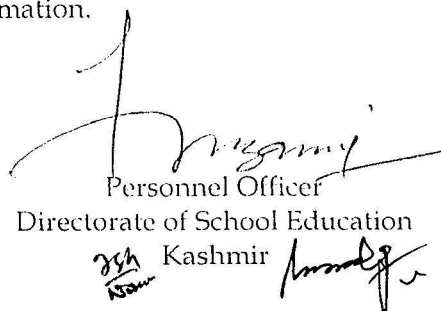 mation.
Personnel Officer
Directorate of School Education
Kashmir